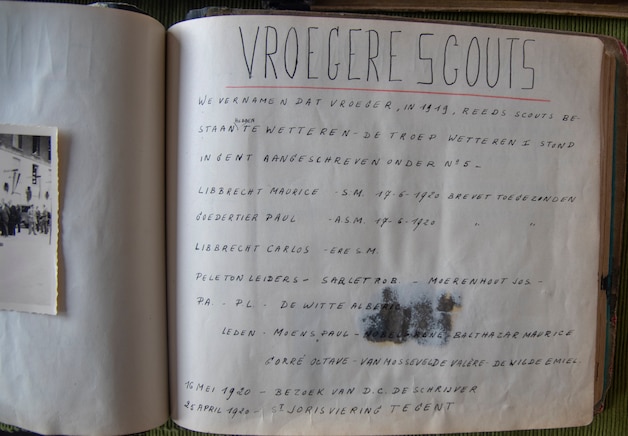 VROEGERE SCOUTS
WE VERNAMEN DAT VROEGER, IN 1919, REEDS SCOUTS BE-
STAAN HADDEN TE WETTEREN - DE TROEP WETTEREN I STOND
IN GENT AANGESCHREVEN ONDER Nº 5 -
LIBBRECHT MAURICE - S.M. 17-6-1920 BREVET TOEGEZONDEN
GOEDERTIER PAUL - A.S.M. 17-6-1920 " "
LIBBRECHT CARLOS - ERE S.M.
PELETON LEIDERS - SABLET ROB. - MOERENHOUT JOS. -
PA. - P.L. - DE WITTE
LEDEN - MOENS PAUL - BALTHAZAR MAURICE
CORRÉ OCTAVE - VAN MOSSEVELDE VALÈRE - DE WILDE EMIEL.
16 MEI 1920 - BEZOEK VAN D.C. DE SCHRIJVER
25 APRIL 1920 - ST JORISVIERING TE GENT